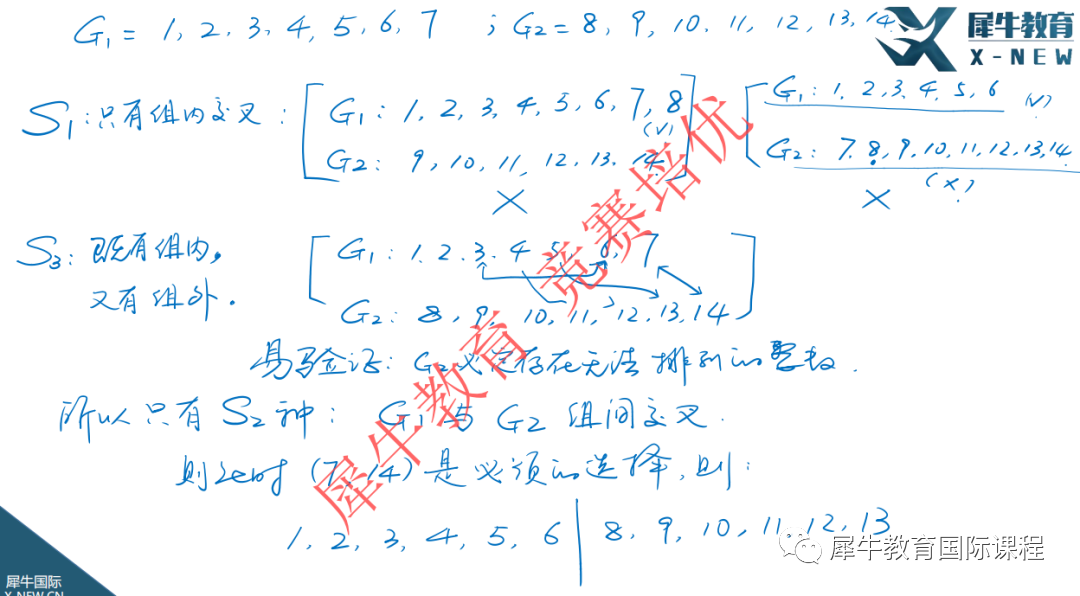 G₁ = 1, 2, 3, 4, 5, 6, 7 ; G₂ = 8, 9, 10, 11, 12, 13, 14
犀牛教育
X-NEW
S₁: 只有组内交叉: [ G₁: 1, 2, 3, 4, 5, 6, 7, 8 ] [ G₁: 1, 2, 3, 4, 5, 6 (√)
(√)
G₂: 9, 10, 11, 12, 13, 14 G₂: 7, 8, 9, 10, 11, 12, 13, 14
× × (×)
S₃: 既有组内, [ G₁: 1, 2, 3, 4, 5, 6, 7 ]
又有组外. G₂: 8, 9, 10, 11, 12, 13, 14
易验证: G₂必定存在无法排列的整数.
所以只有 S₂ 种: G₁ 与 G₂ 组间交叉.
则此时 (7, 14) 是必须的选择, 则:
1, 2, 3, 4, 5, 6 | 8, 9, 10, 11, 12, 13
犀牛教育 竞赛培优
犀牛教育国际课程
犀牛国际
X-NEW.CN